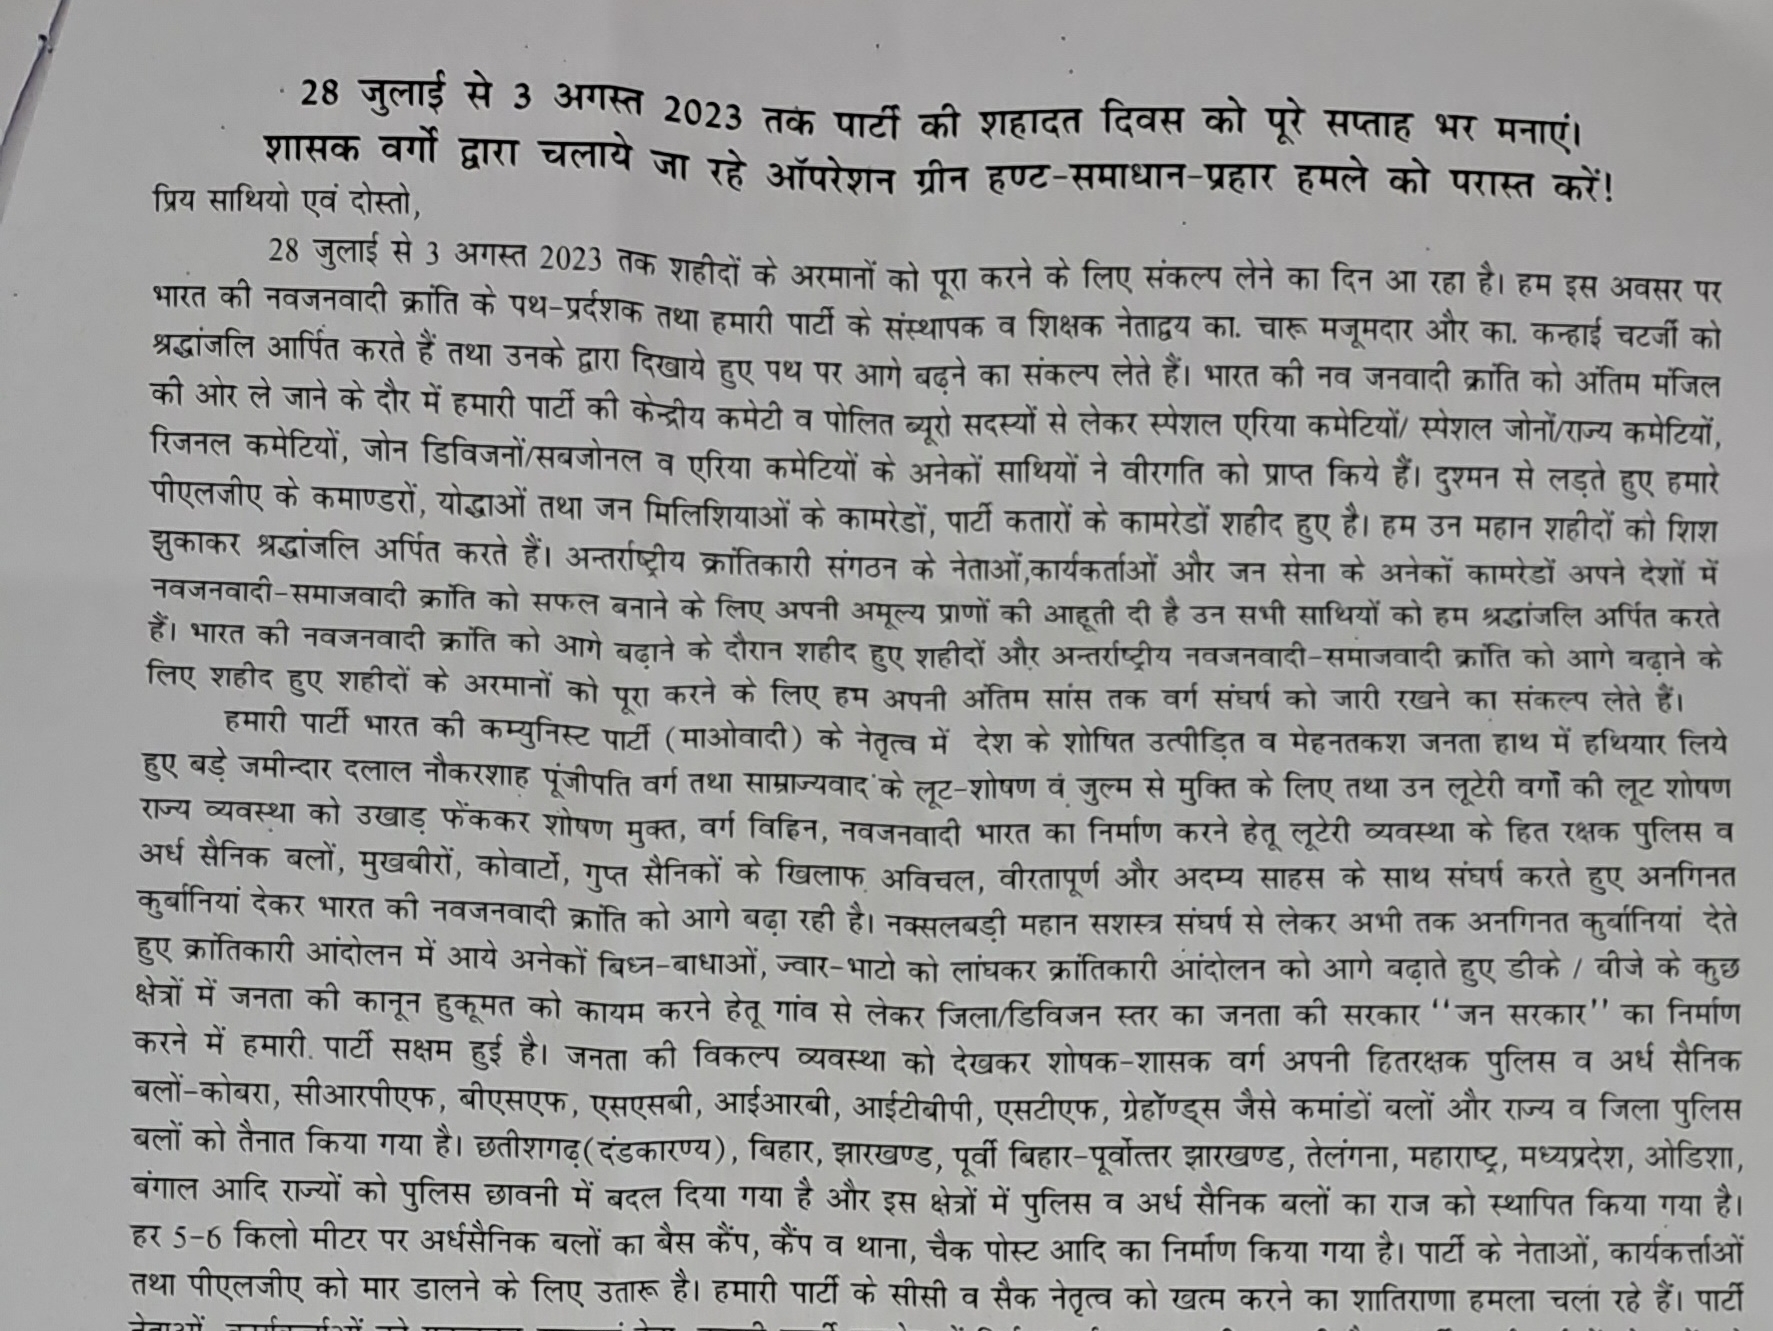 28 जुलाई से 3 अगस्त 2023 तक पार्टी की शहादत दिवस को पूरे सप्ताह भर मनाएं।
शासक वर्गो द्वारा चलाये जा रहे ऑपरेशन ग्रीन हण्ट-समाधान-प्रहार हमले को परास्त करें!
प्रिय साथियो एवं दोस्तो,
28 जुलाई से 3 अगस्त 2023 तक शहीदों के अरमानों को पूरा करने के लिए संकल्प लेने का दिन आ रहा है। हम इस अवसर पर
भारत की नवजनवादी क्रांति के पथ-प्रर्दशक तथा हमारी पार्टी के संस्थापक व शिक्षक नेताद्वय का. चारू मजूमदार और का. कन्हाई चटर्जी को
श्रद्धांजलि आर्पित करते हैं तथा उनके द्वारा दिखाये हुए पथ पर आगे बढ़ने का संकल्प लेते हैं। भारत की नव जनवादी क्रांति को अंतिम मंजिल
की ओर ले जाने के दौर में हमारी पार्टी की केन्द्रीय कमेटी व पोलित ब्यूरो सदस्यों से लेकर स्पेशल एरिया कमेटियों/ स्पेशल जोनों/राज्य कमेटियों,
रिजनल कमेटियों, जोन डिविजनों/सबजोनल व एरिया कमेटियों के अनेकों साथियों ने वीरगति को प्राप्त किये हैं। दुश्मन से लड़ते हुए हमारे
पीएलजीए के कमाण्डरों, योद्धाओं तथा जन मिलिशियाओं के कामरेडों, पार्टी कतारों के कामरेडों शहीद हुए है। हम उन महान शहीदों को शिश
झुकाकर श्रद्धांजलि अर्पित करते हैं। अन्तर्राष्ट्रीय क्रांतिकारी संगठन के नेताओं,कार्यकर्ताओं और जन सेना के अनेकों कामरेडों अपने देशों में
नवजनवादी-समाजवादी क्रांति को सफल बनाने के लिए अपनी अमूल्य प्राणों की आहूती दी है उन सभी साथियों को हम श्रद्धांजलि अर्पित करते
हैं। भारत की नवजनवादी क्रांति को आगे बढ़ाने के दौरान शहीद हुए शहीदों और अन्तर्राष्ट्रीय नवजनवादी-समाजवादी क्रांति को आगे बढ़ाने के
लिए शहीद हुए शहीदों के अरमानों को पूरा करने के लिए हम अपनी अंतिम सांस तक वर्ग संघर्ष को जारी रखने का संकल्प लेते हैं।
हमारी पार्टी भारत की कम्युनिस्ट पार्टी (माओवादी) के नेतृत्व में देश के शोषित उत्पीड़ित व मेहनतकश जनता हाथ में हथियार लिये
हुए बड़े जमीन्दार दलाल नौकरशाह पूंजीपति वर्ग तथा साम्राज्यवाद के लूट-शोषण वं जुल्म से मुक्ति के लिए तथा उन लूटेरी वर्गों की लूट शोषण
राज्य व्यवस्था को उखाड़ फेंककर शोषण मुक्त, वर्ग विहिन, नवजनवादी भारत का निर्माण करने हेतू लूटेरी व्यवस्था के हित रक्षक पुलिस व
अर्ध सैनिक बलों, मुखबीरों, कोवार्टो, गुप्त सैनिकों के खिलाफ अविचल, वीरतापूर्ण और अदम्य साहस के साथ संघर्ष करते हुए अनगिनत
कुर्बानियां देकर भारत की नवजनवादी क्रांति को आगे बढ़ा रही है। नक्सलबड़ी महान सशस्त्र संघर्ष से लेकर अभी तक अनगिनत कुर्बानियां देते
हुए क्रांतिकारी आंदोलन में आये अनेकों बिध्न-बाधाओं, ज्वार-भाटो को लांघकर क्रांतिकारी आंदोलन को आगे बढ़ाते हुए डीके / बीजे के कुछ
क्षेत्रों में जनता की कानून हुकूमत को कायम करने हेतू गांव से लेकर जिला/डिविजन स्तर का जनता की सरकार ''जन सरकार'' का निर्माण
करने में हमारी. पार्टी सक्षम हुई है। जनता की विकल्प व्यवस्था को देखकर शोषक-शासक वर्ग अपनी हितरक्षक पुलिस व अर्ध सैनिक
बलों-कोबरा, सीआरपीएफ, बीएसएफ, एसएसबी, आईआरबी, आईटीबीपी, एसटीएफ, ग्रेहॉण्ड्स जैसे कमांडों बलों और राज्य व जिला पुलिस
बलों को तैनात किया गया है। छतीशगढ़(दंडकारण्य), बिहार, झारखण्ड, पूर्वी बिहार-पूर्वोत्तर झारखण्ड, तेलंगना, महाराष्ट्र, मध्यप्रदेश, ओडिशा,
बंगाल आदि राज्यों को पुलिस छावनी में बदल दिया गया है और इस क्षेत्रों में पुलिस व अर्ध सैनिक बलों का राज को स्थापित किया गया है।
हर 5-6 किलो मीटर पर अर्धसैनिक बलों का बैस कैंप, कैंप व थाना, चैक पोस्ट आदि का निर्माण किया गया है। पार्टी के नेताओं, कार्यकर्त्ताओं
तथा पीएलजीए को मार डालने के लिए उतारू है। हमारी पार्टी के सीसी व सैक नेतृत्व को खत्म करने का शातिराणा हमला चला रहे हैं। पार्टी